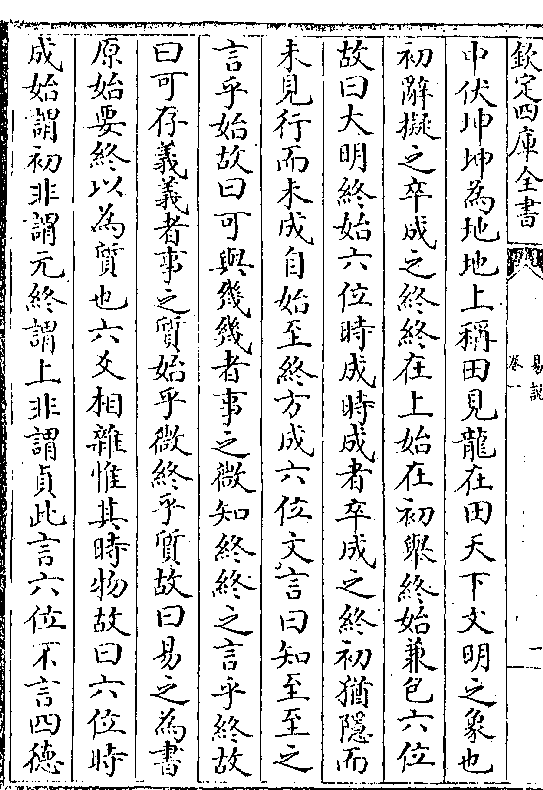 欽定四庫全書
易説
卷一
一
中伏坤坤為地地上稱田見龍在田天下文明之象也
初辭擬之卒成之終終在上始在初舉終始兼包六位
故曰大明終始六位時成時成者卒成之終初猶隱而
未見行而未成自始至終方成六位文言曰知至至之
言乎始故曰可與幾幾者事之微知終終之言乎終故
曰可存義義者事之質始乎微終乎質故曰易之為書
原始要終以為質也六爻相雜惟其時物故曰六位時
成始謂初非謂元終謂上非謂貞此言六位不言四徳